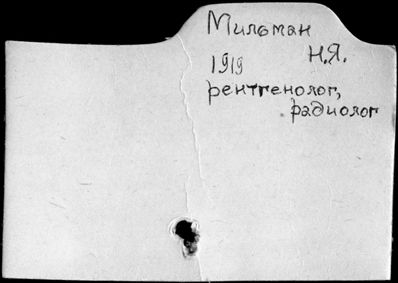 Мильман
Н.Я.
1919
рентгенолог,
радиолог